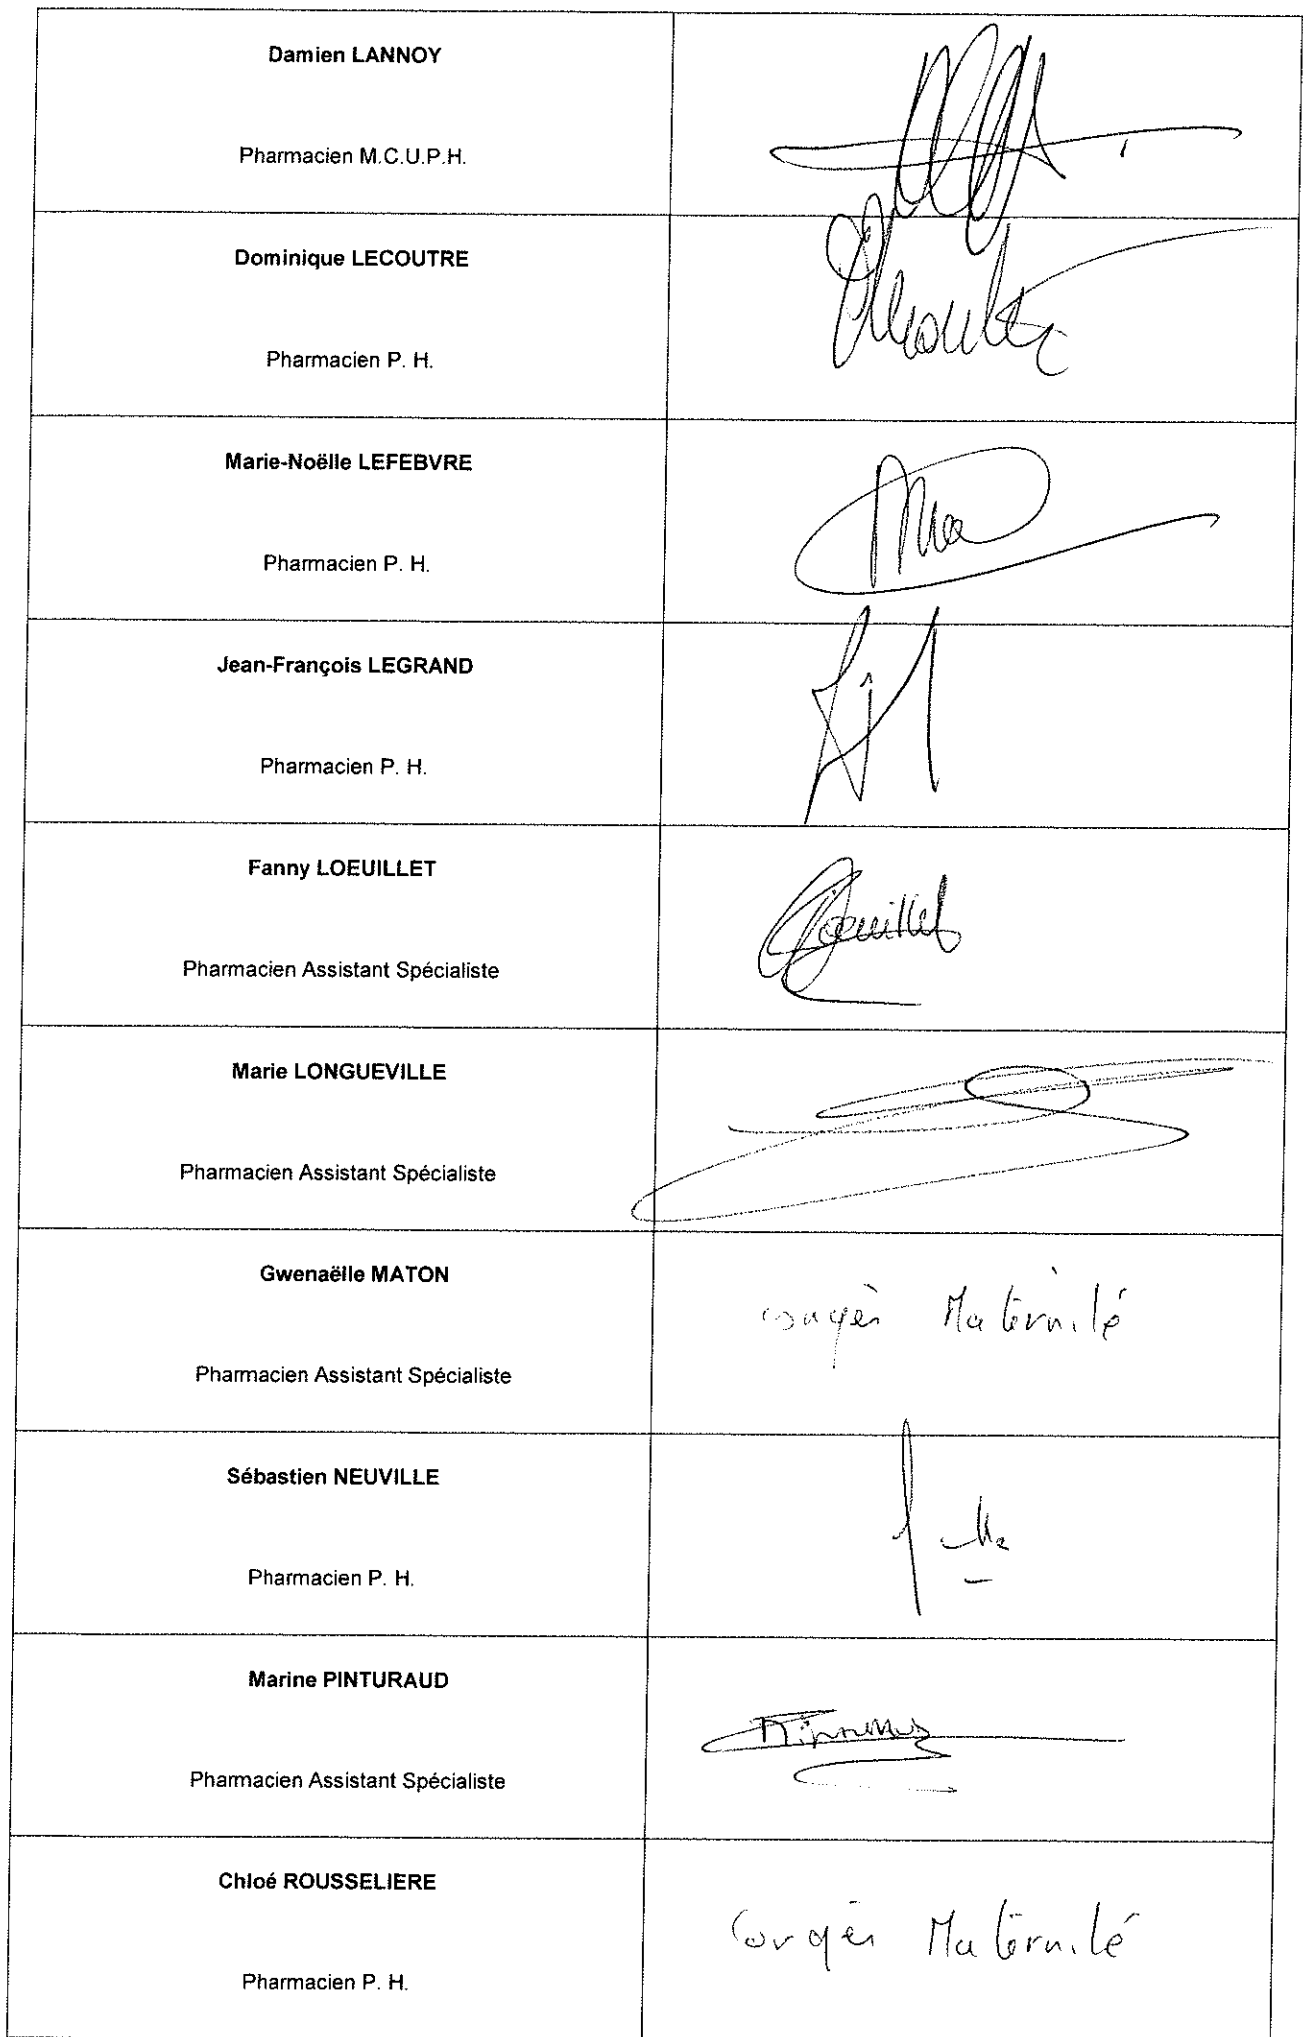 Damien LANNOY
Pharmacien M.C.U.P.H.
Dominique LECOUTRE
Pharmacien P. H.
Marie-Noëlle LEFEBVRE
Pharmacien P. H.
Jean-François LEGRAND
Pharmacien P. H.
Fanny LOEUILLET
Loeuillet
Pharmacien Assistant Spécialiste
Marie LONGUEVILLE
Pharmacien Assistant Spécialiste
Gwenaëlle MATON
congès Maternité
Pharmacien Assistant Spécialiste
Sébastien NEUVILLE
Pharmacien P. H.
Marine PINTURAUD
Pharmacien Assistant Spécialiste
Chloé ROUSSELIERE
Congès Maternité
Pharmacien P. H.